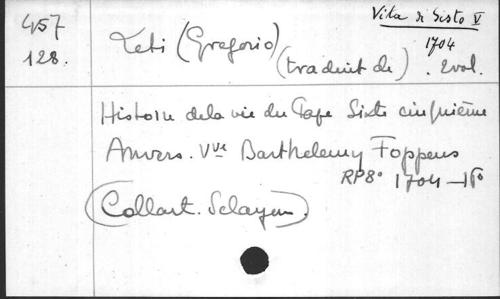 457
128.
Vita di Sisto V
1704
Leti (Gregorio)
(traduit de) . 2 vol.
Histoire de la vie du Pape Sixte cinquième
Anvers. Vve Barthelemy Foppens
RP8° 1704 –
(Collart. Sclayn).